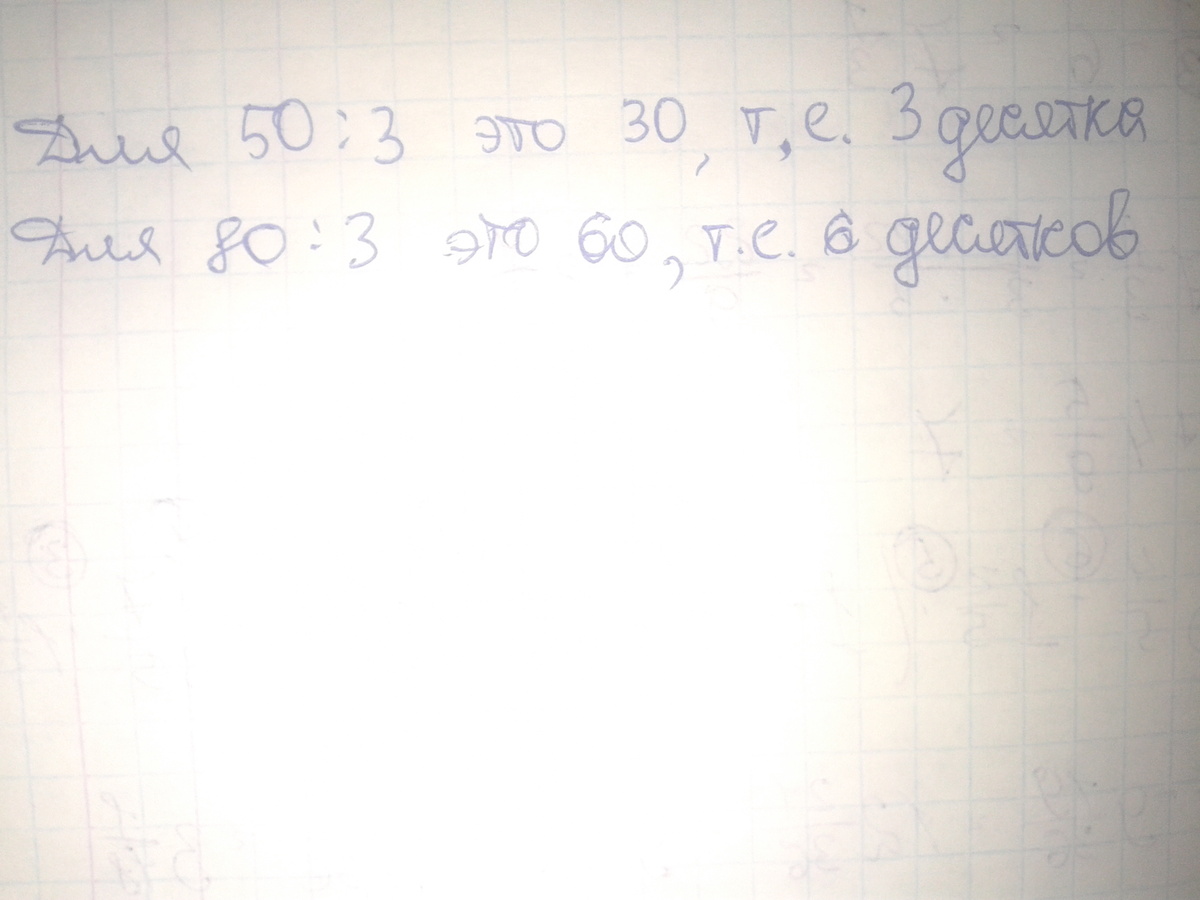 Для 50:3 это 30, т,е. 3 десятка
Для 80:3 это 60, т.е. 6 десятков